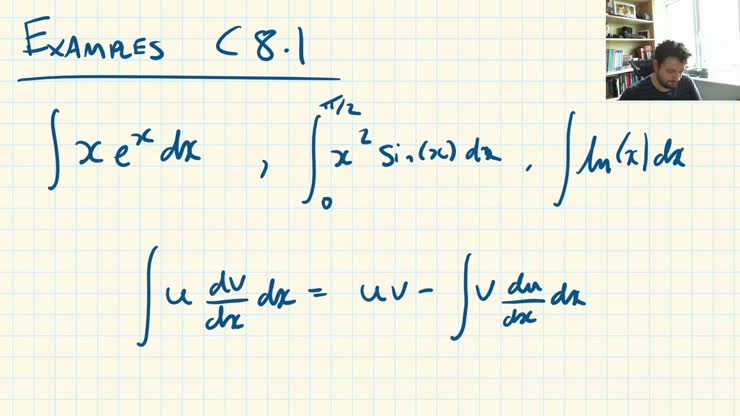 EXAMPLES C8.1
∫ x eˣ dx , ∫₀^{π/2} x² sin(x) dx , ∫ ln(x) dx
∫ u dv/dx dx = uv - ∫ v du/dx dx